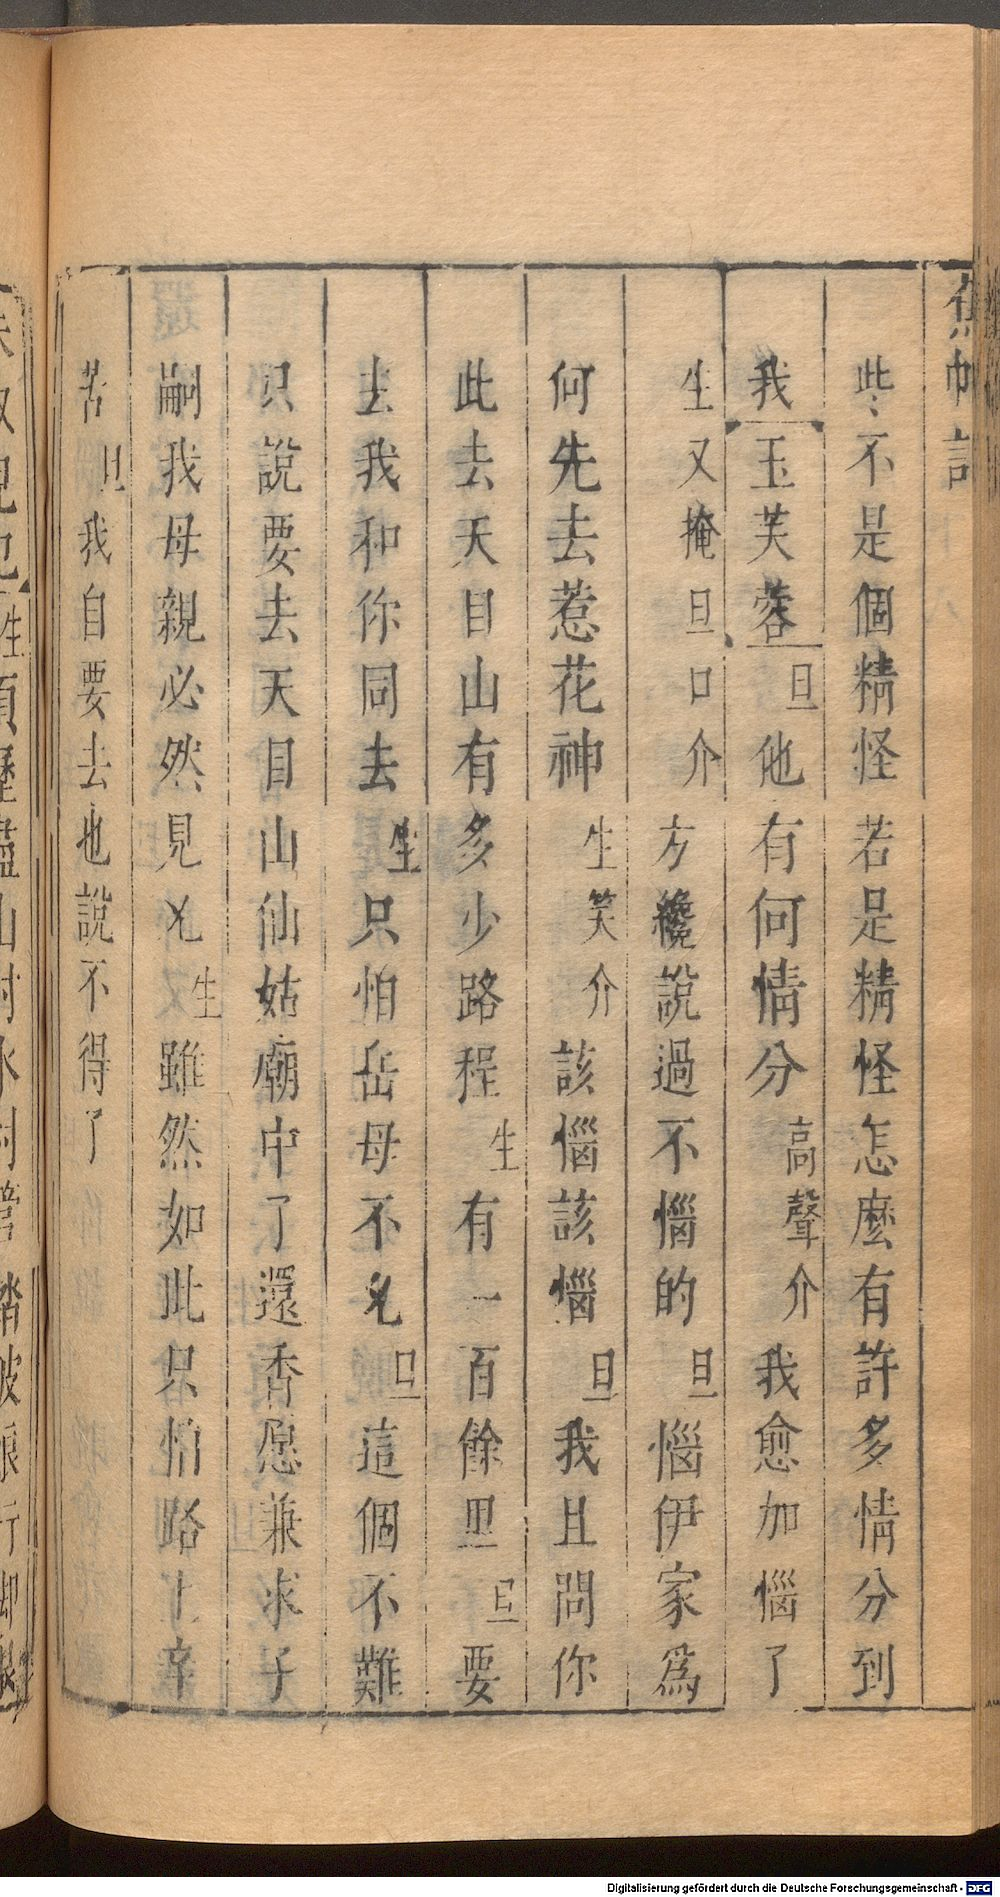 焦帕記
些不是個精怪若是精怪怎麼有許多情分到
我玉芙蓉旦他有何情分高聲介我愈加惱了
生又掩旦口介方纔說過不惱的旦惱伊家爲
何先去惹花神生笑介該惱該惱旦我且問你
此去天目山有多少路程生有一百餘里旦要
去我和你同去生只怕岳母不允旦這個不難
只說要去天目山仙姑廟中了還香愿兼求子
嗣我母親必然見允生雖然如此只怕路上辛
苦旦我自要去也說不得了
Digitalisierung gefördert durch die Deutsche Forschungsgemeinschaft - DFG